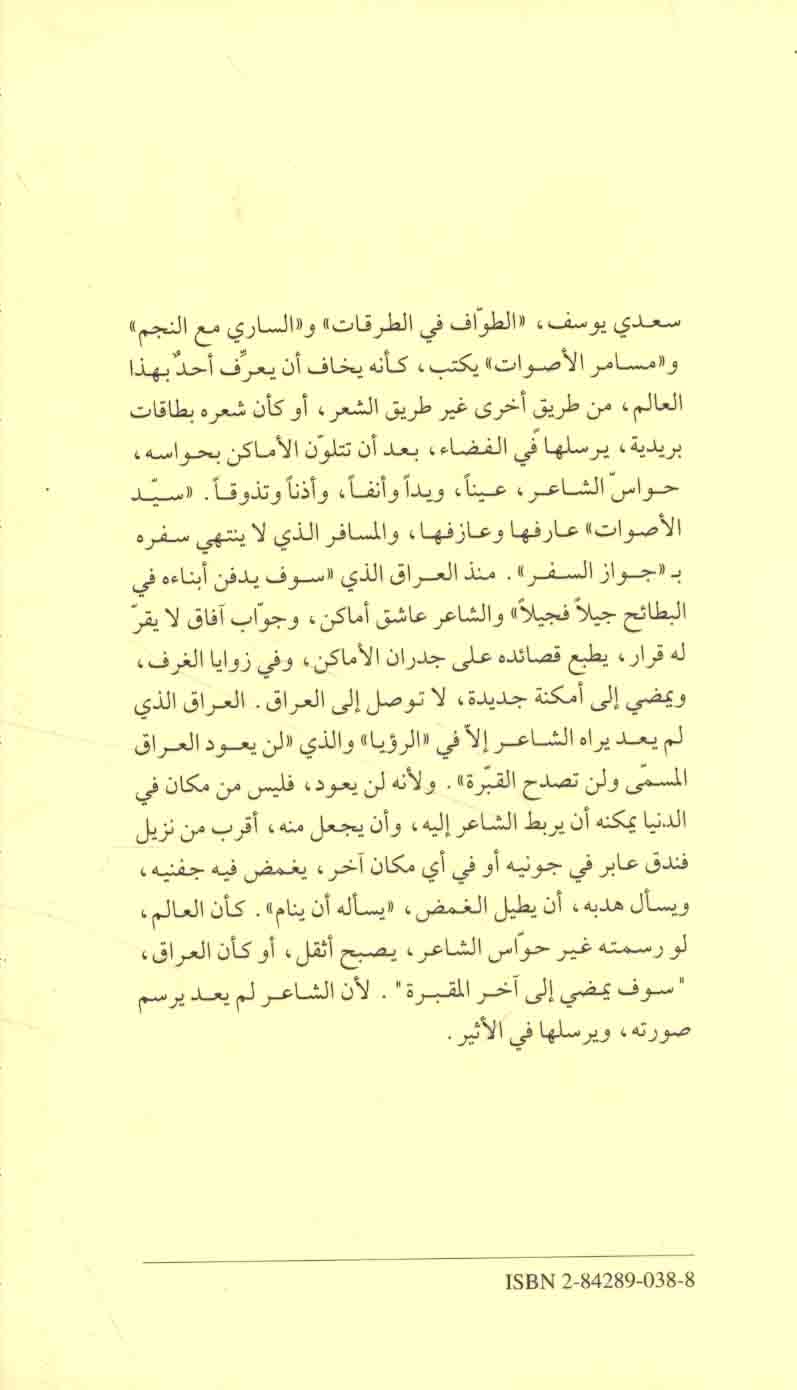 سعدي يوسف، «الطوّاف في الطرقات» و«الساري مع النجم»
و«مسامر الأصوات» يكتب، كأنه يخاف أن يعرِّف أحدٌ بهذا
العالم، من طريق أخرى غير طريق الشعر، أو كأن شعره بطاقات
بريدية، يرسلها في الفضاء، بعد أن تتلوّن الأماكن بحواسه،
حواسّ الشاعر، عيناً، ويداً وأنفاً، وأذناً وتذوقاً. «سيّد
الأصوات» عارفها وعازفها، والمسافر الذي لا ينتهي سفره
بـ«جواز السفر». منذ العراق الذي «سوف يدفن أبناءه في
البطائح جيلاً فجيلاً» والشاعر عاشق أماكن، وجوّاب آفاق لا يقرّ
له قرار، يطبع قصائده على جدران الأماكن، وفي زوايا الغرف،
ويمضي إلى أمكنة جديدة، لا توصل إلى العراق. العراق الذي
لم يعد يراه الشاعر إلاّ في «الرؤيا» والذي «لن يعود العراق
المسمّى ولن تصدح القبّرة». ولأنه لن يعود، فليس من مكان في
الدنيا يمكنه أن يربط الشاعر إليه، وأن يجعل منه، أقرب من نزيل
فندق عابر في جونيه أو في أي مكان آخر، يغمض فيه جفنيه،
ويسأل هدبه، أن يطيل الغمض، «يسأله أن ينام». كأن العالم،
لو رسمته غير حوّاس الشاعر، يصبح أثقل، أو كأن العراق،
"سوف يمضي إلى آخر المقبرة". لأن الشاعر لم يعد يرسم
صورته، ويرسلها في الأثير.
ISBN 2-84289-038-8